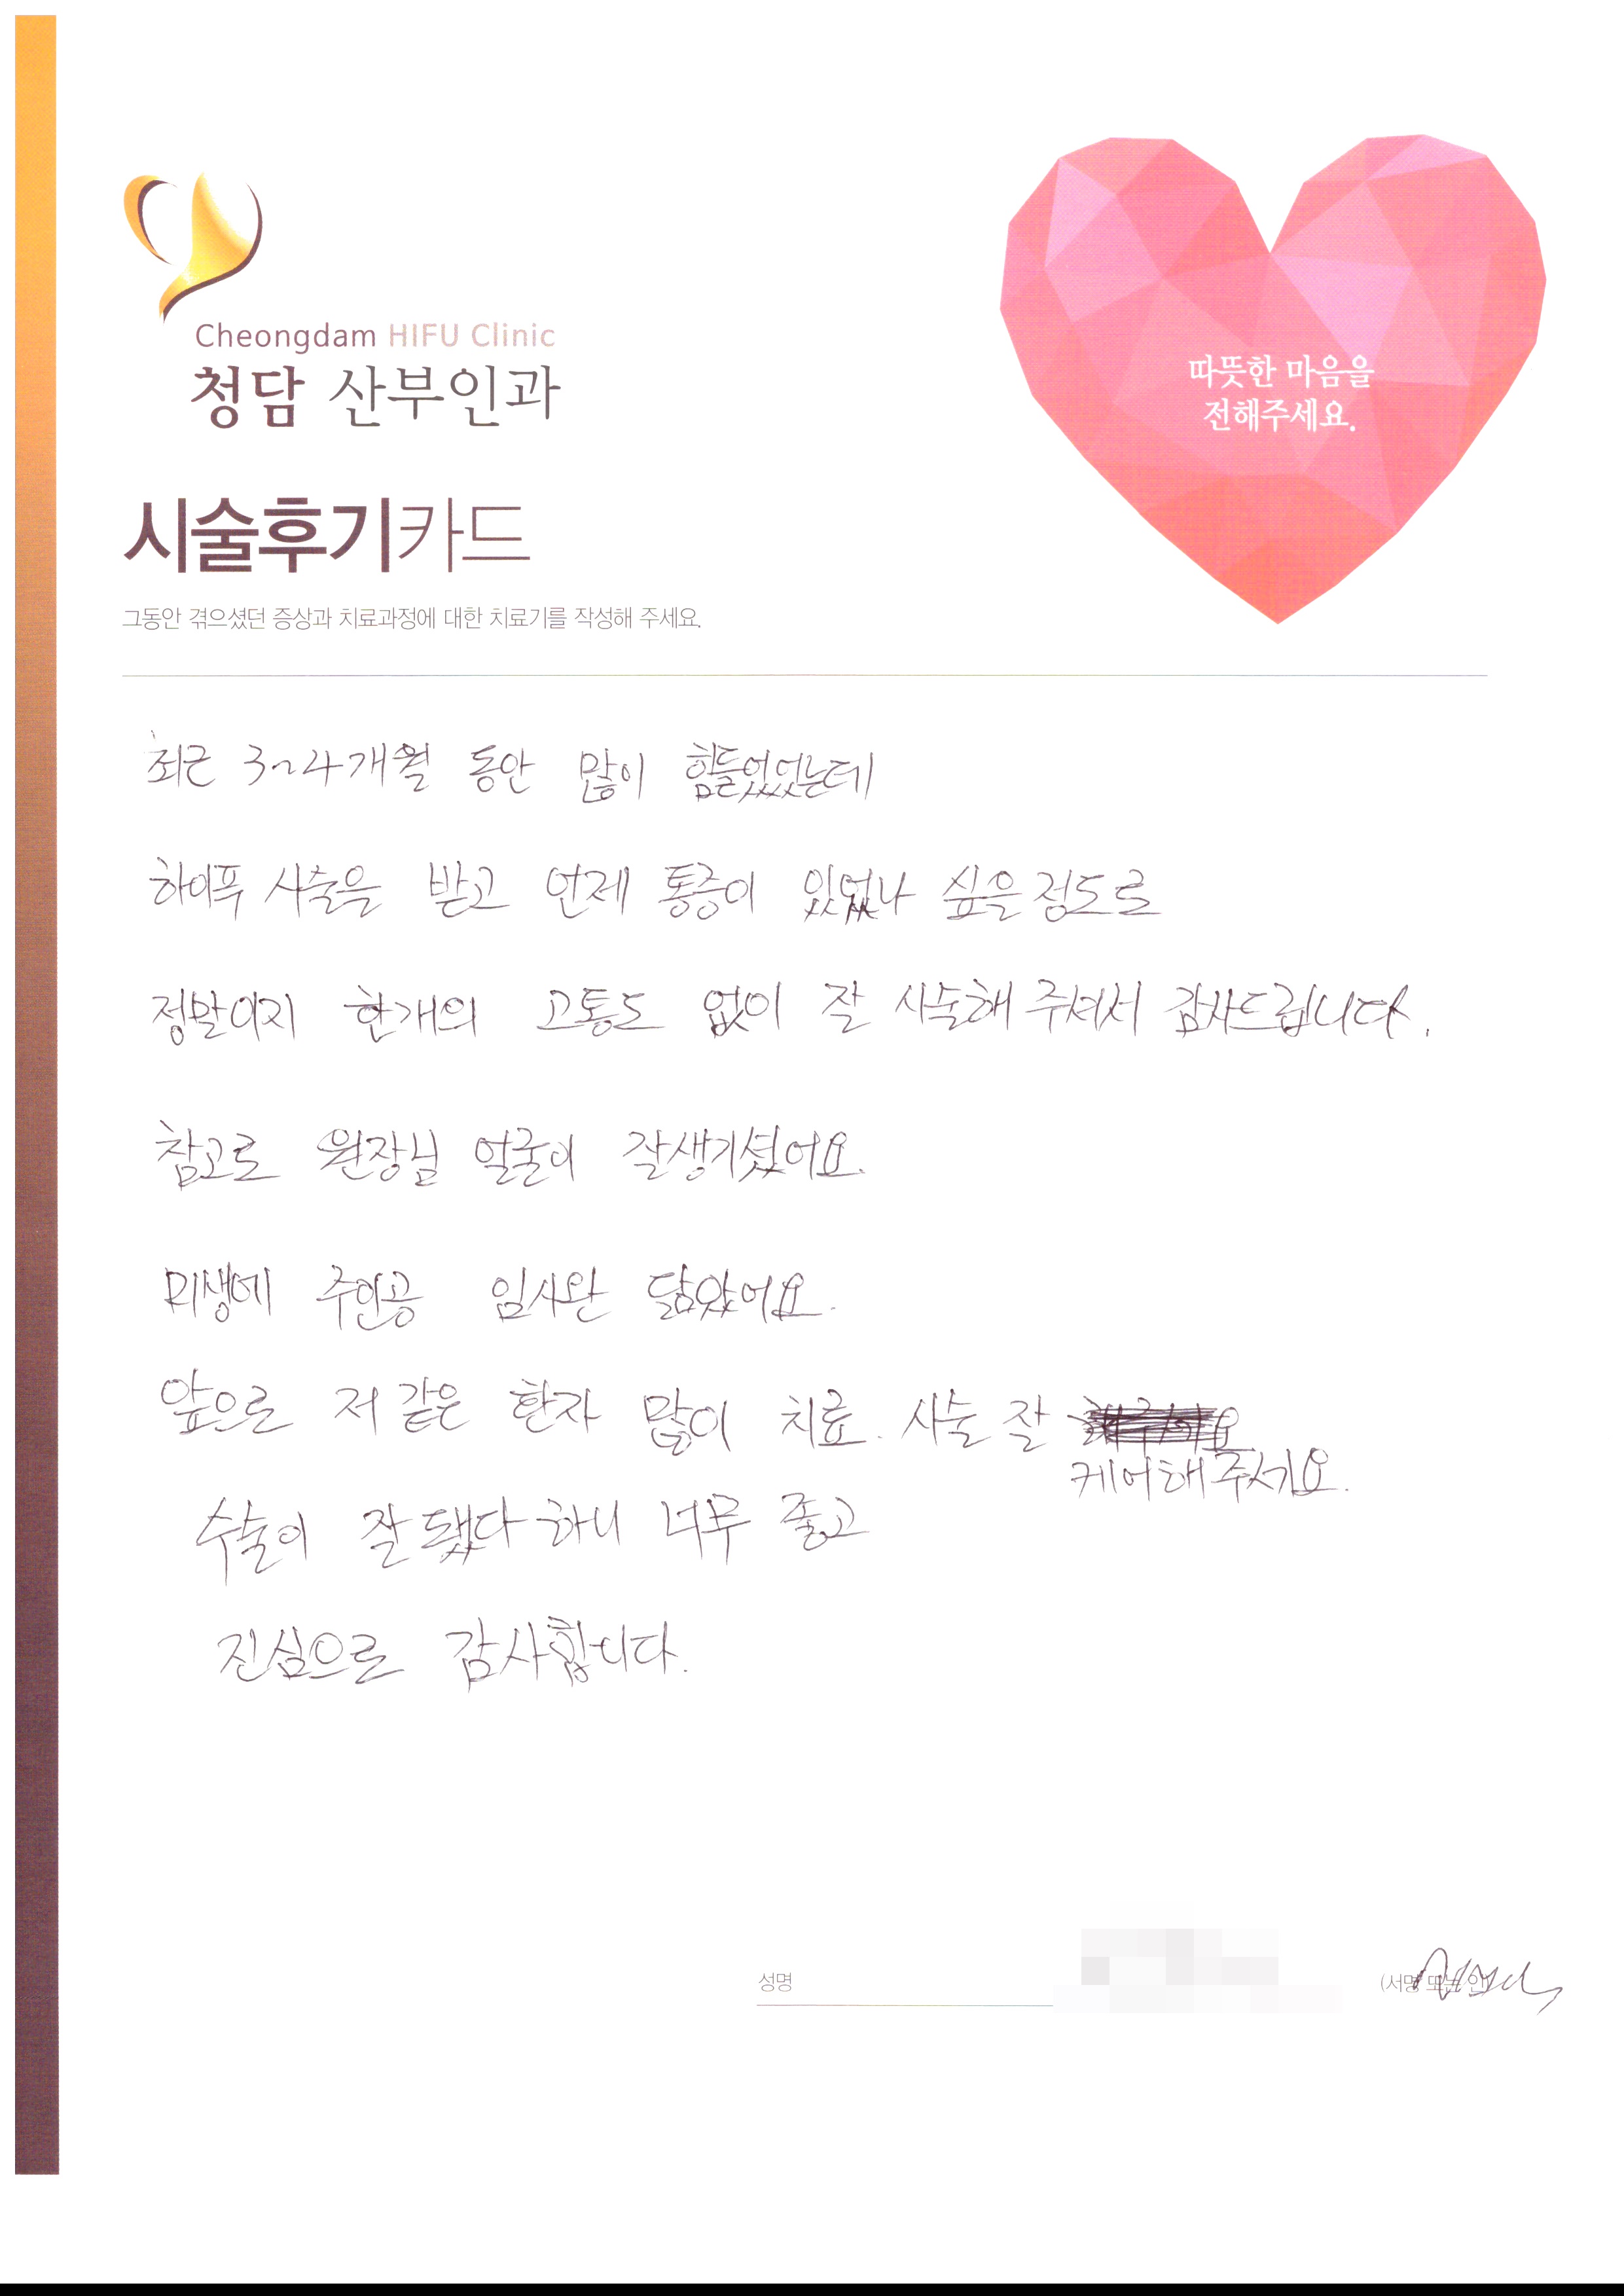 Cheongdam HIFU Clinic
청담 산부인과
따뜻한 마음을
전해주세요.
시술후기카드
그동안 겪으셨던 증상과 치료과정에 대한 치료기를 작성해 주세요.
최근 3~4개월 동안 많이 힘들었었는데
하이푸 시술을 받고 언제 통증이 있었나 싶을정도로
정말이지 한개의 고통도 없이 잘 시술해 주셔서 감사드립니다.
참고로 원장님 얼굴이 잘생기셨어요.
미생에 주인공 임시완 닮았어요.
앞으로 저 같은 환자 많이 치료. 시술 잘
케어해주세요.
수술이 잘 됐다하니 너무 좋고
진심으로 감사합니다.
성명
(서명 또는 인)